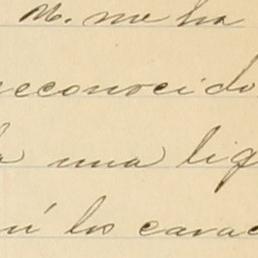 M. me ha
reconocido
a una lig
ní los carac